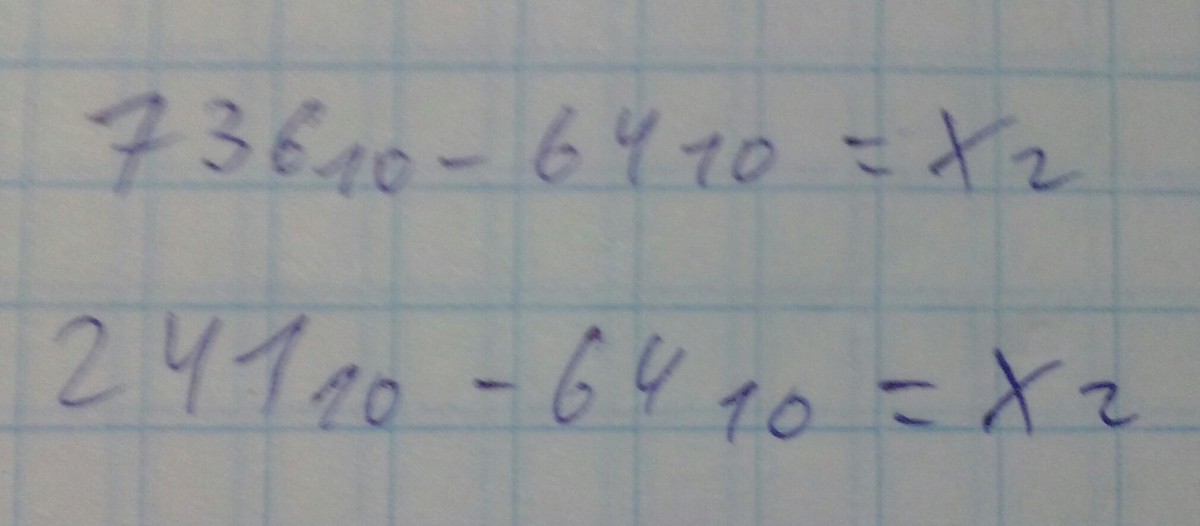 736₁₀ - 64₁₀ = X₂
241₁₀ - 64₁₀ = X₂